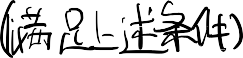 (满足上述条件)